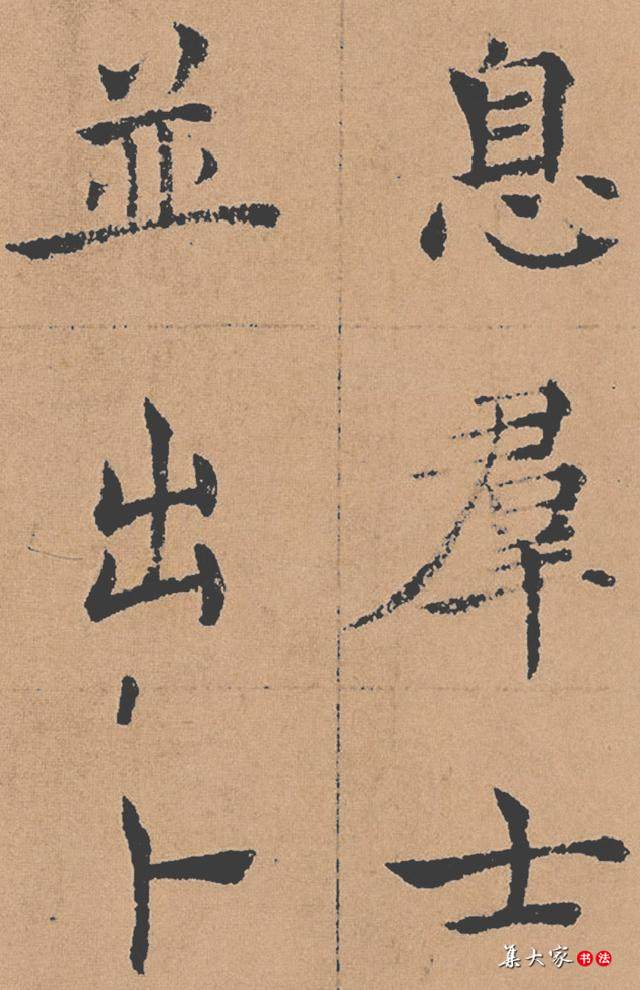 息羣士
並出卜
集大家书法